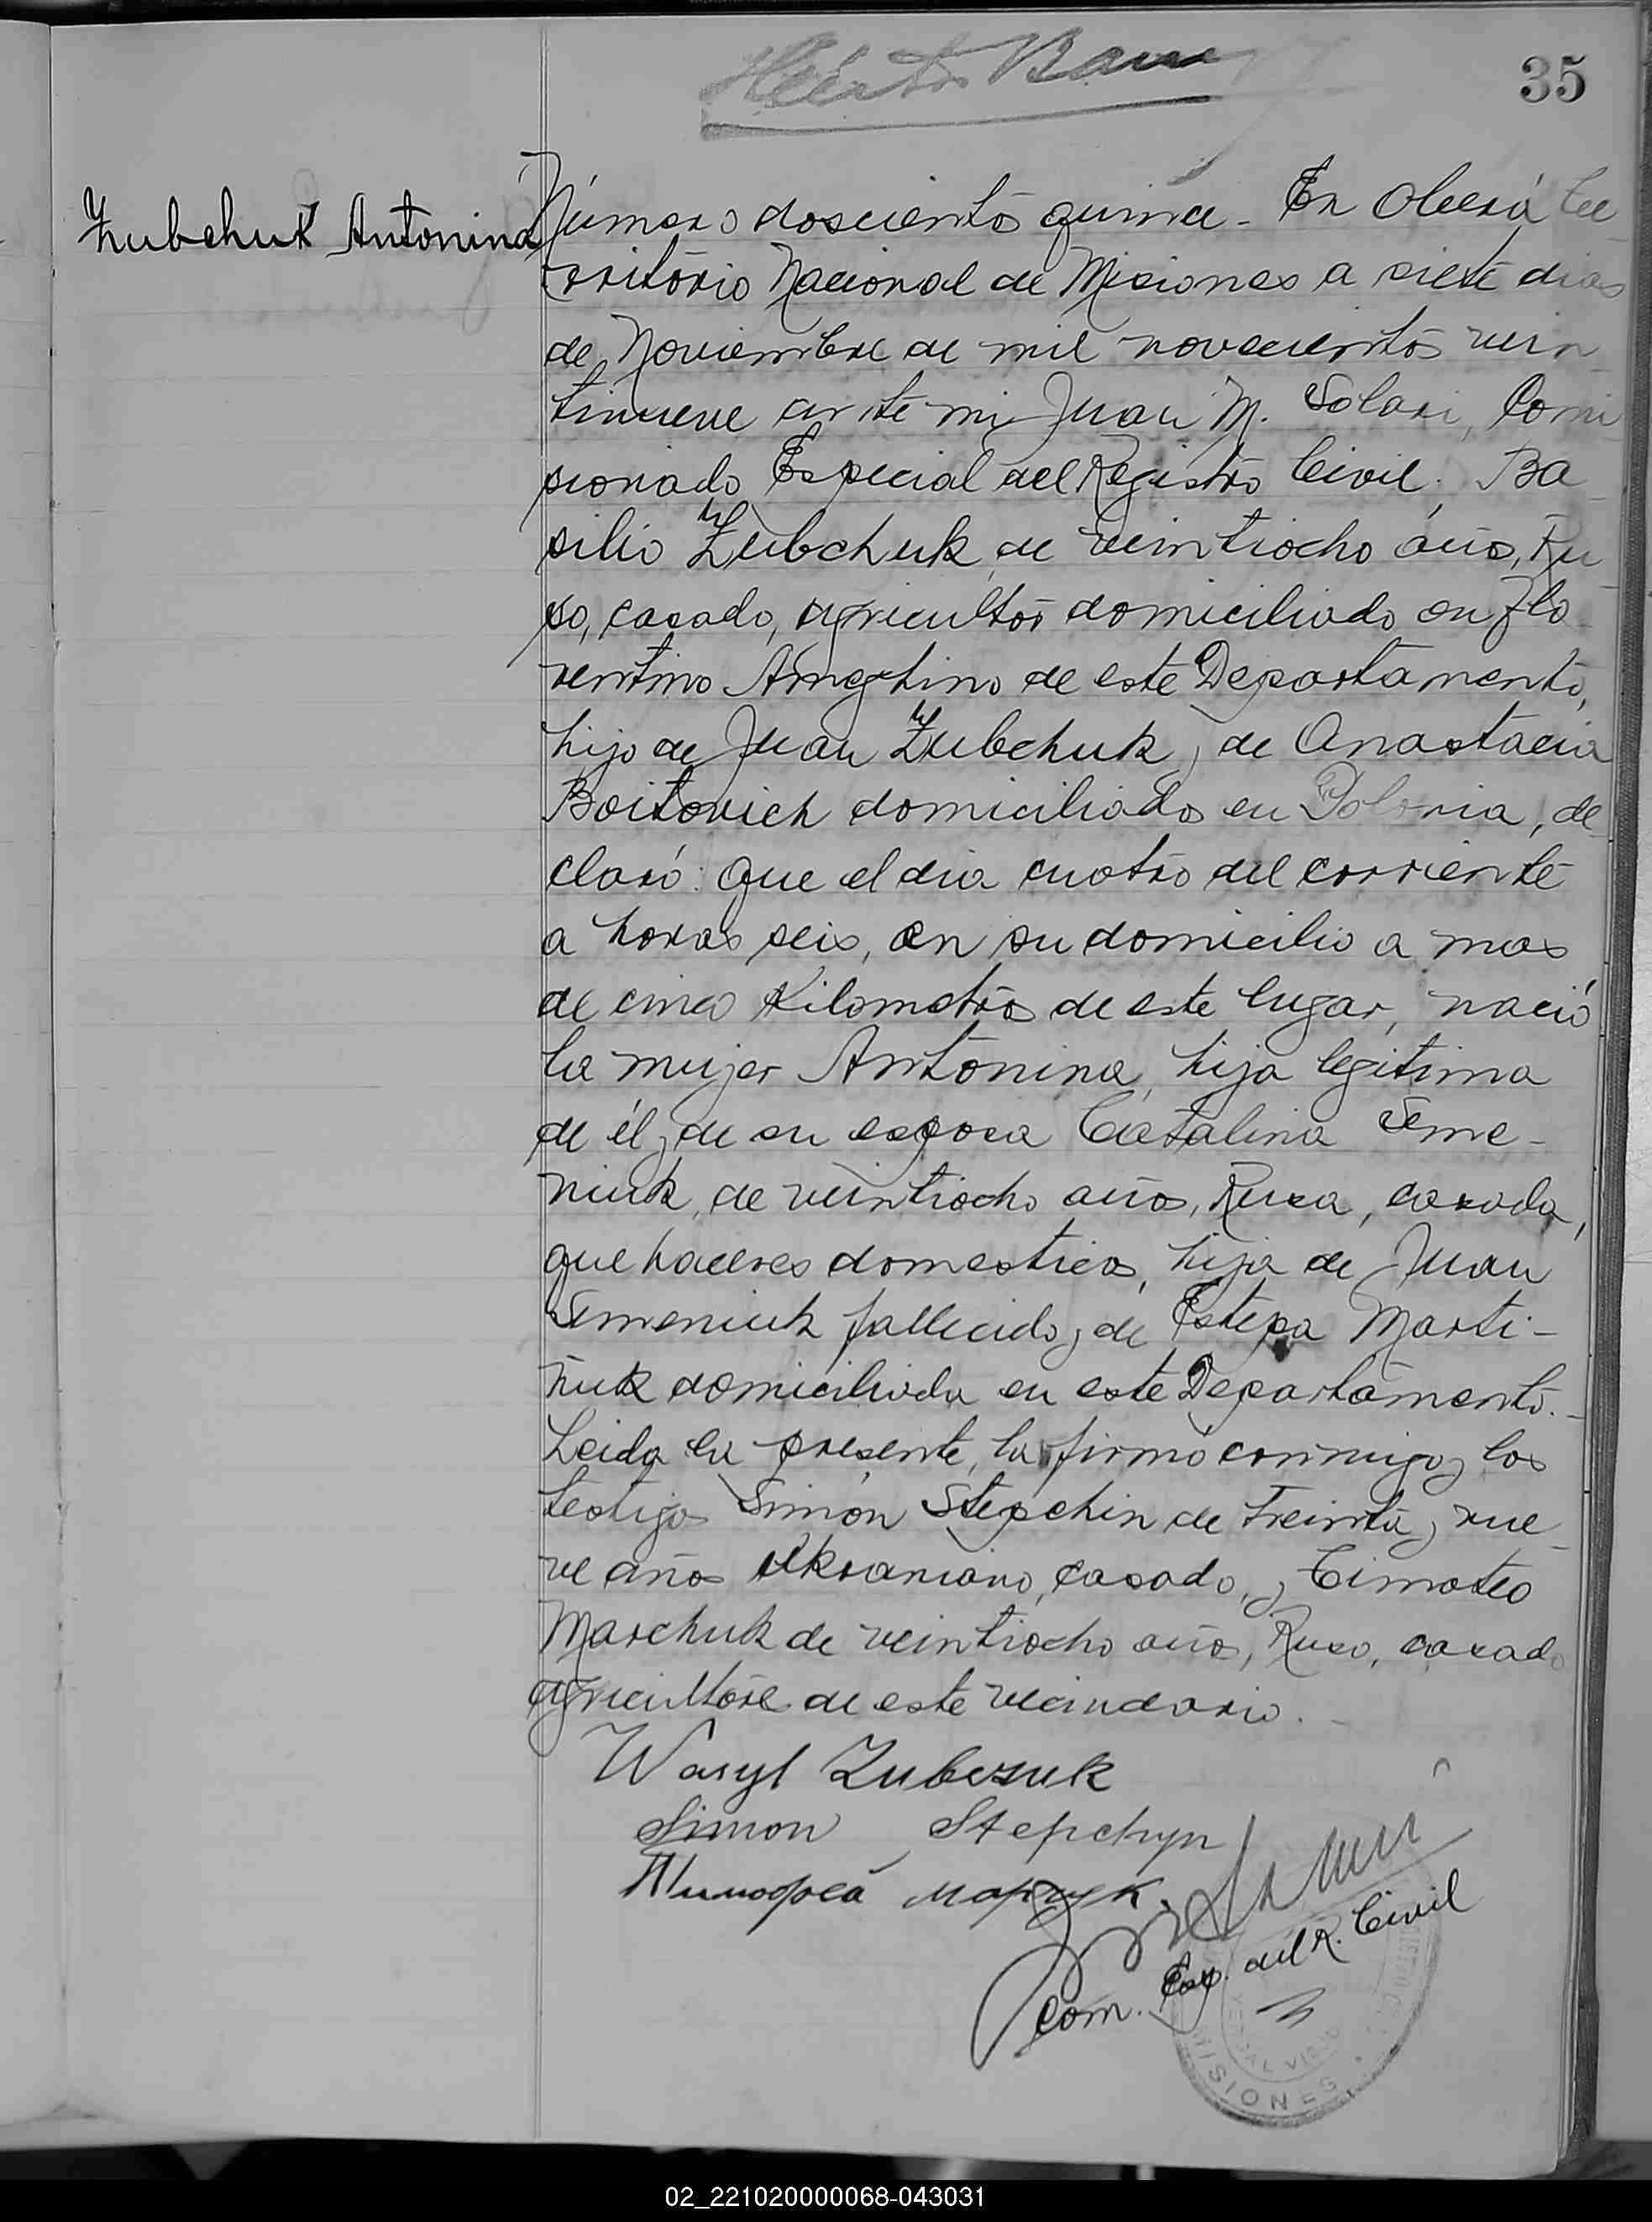 35
Zubchuk Antonina
Número doscientos quince - En Oberá Te
rritorio Nacional de Misiones a siete dias
de Noviembre de mil novecientos vein
tinueve ante mi Juan M. Solari, Comi
sionado Especial del Registro Civil. Ba
silio Zubchuk, de veintiocho años, Ru
so, casado, agricultor domiciliado en Flo
rentino Ameghino de este Departamento,
hijo de Juan Zubchuk y de Anastacia
Boitovich domiciliados en Polonia, de
claró: Que el dia cuatro del corriente
a horas seis, en su domicilio a mas
de cinco Kilometros de este lugar, nació
la mujer Antonina, hija legitima
de él y de su esposa Catalina Seme-
niuk, de veintiocho años, Rusa, casada,
que haceres domesticos, hija de Juan
Semeniuk fallecido y de Estepa Marti-
ñuk domiciliada en este Departamento.-
Leida la presente, la firmó conmigo y los
testigos Simón Stepchin de treinta y nue
ve años Ukraniano, casado, y Timoteo
Marchuk de veintiocho años, Ruso, casado
agricultores de este vecindario.-
Wasyl Zubczuk
Simon Stepchyn
Тимофей Марчук
Com. Esp. del R. Civil
MISIONES
02_221020000068-043031